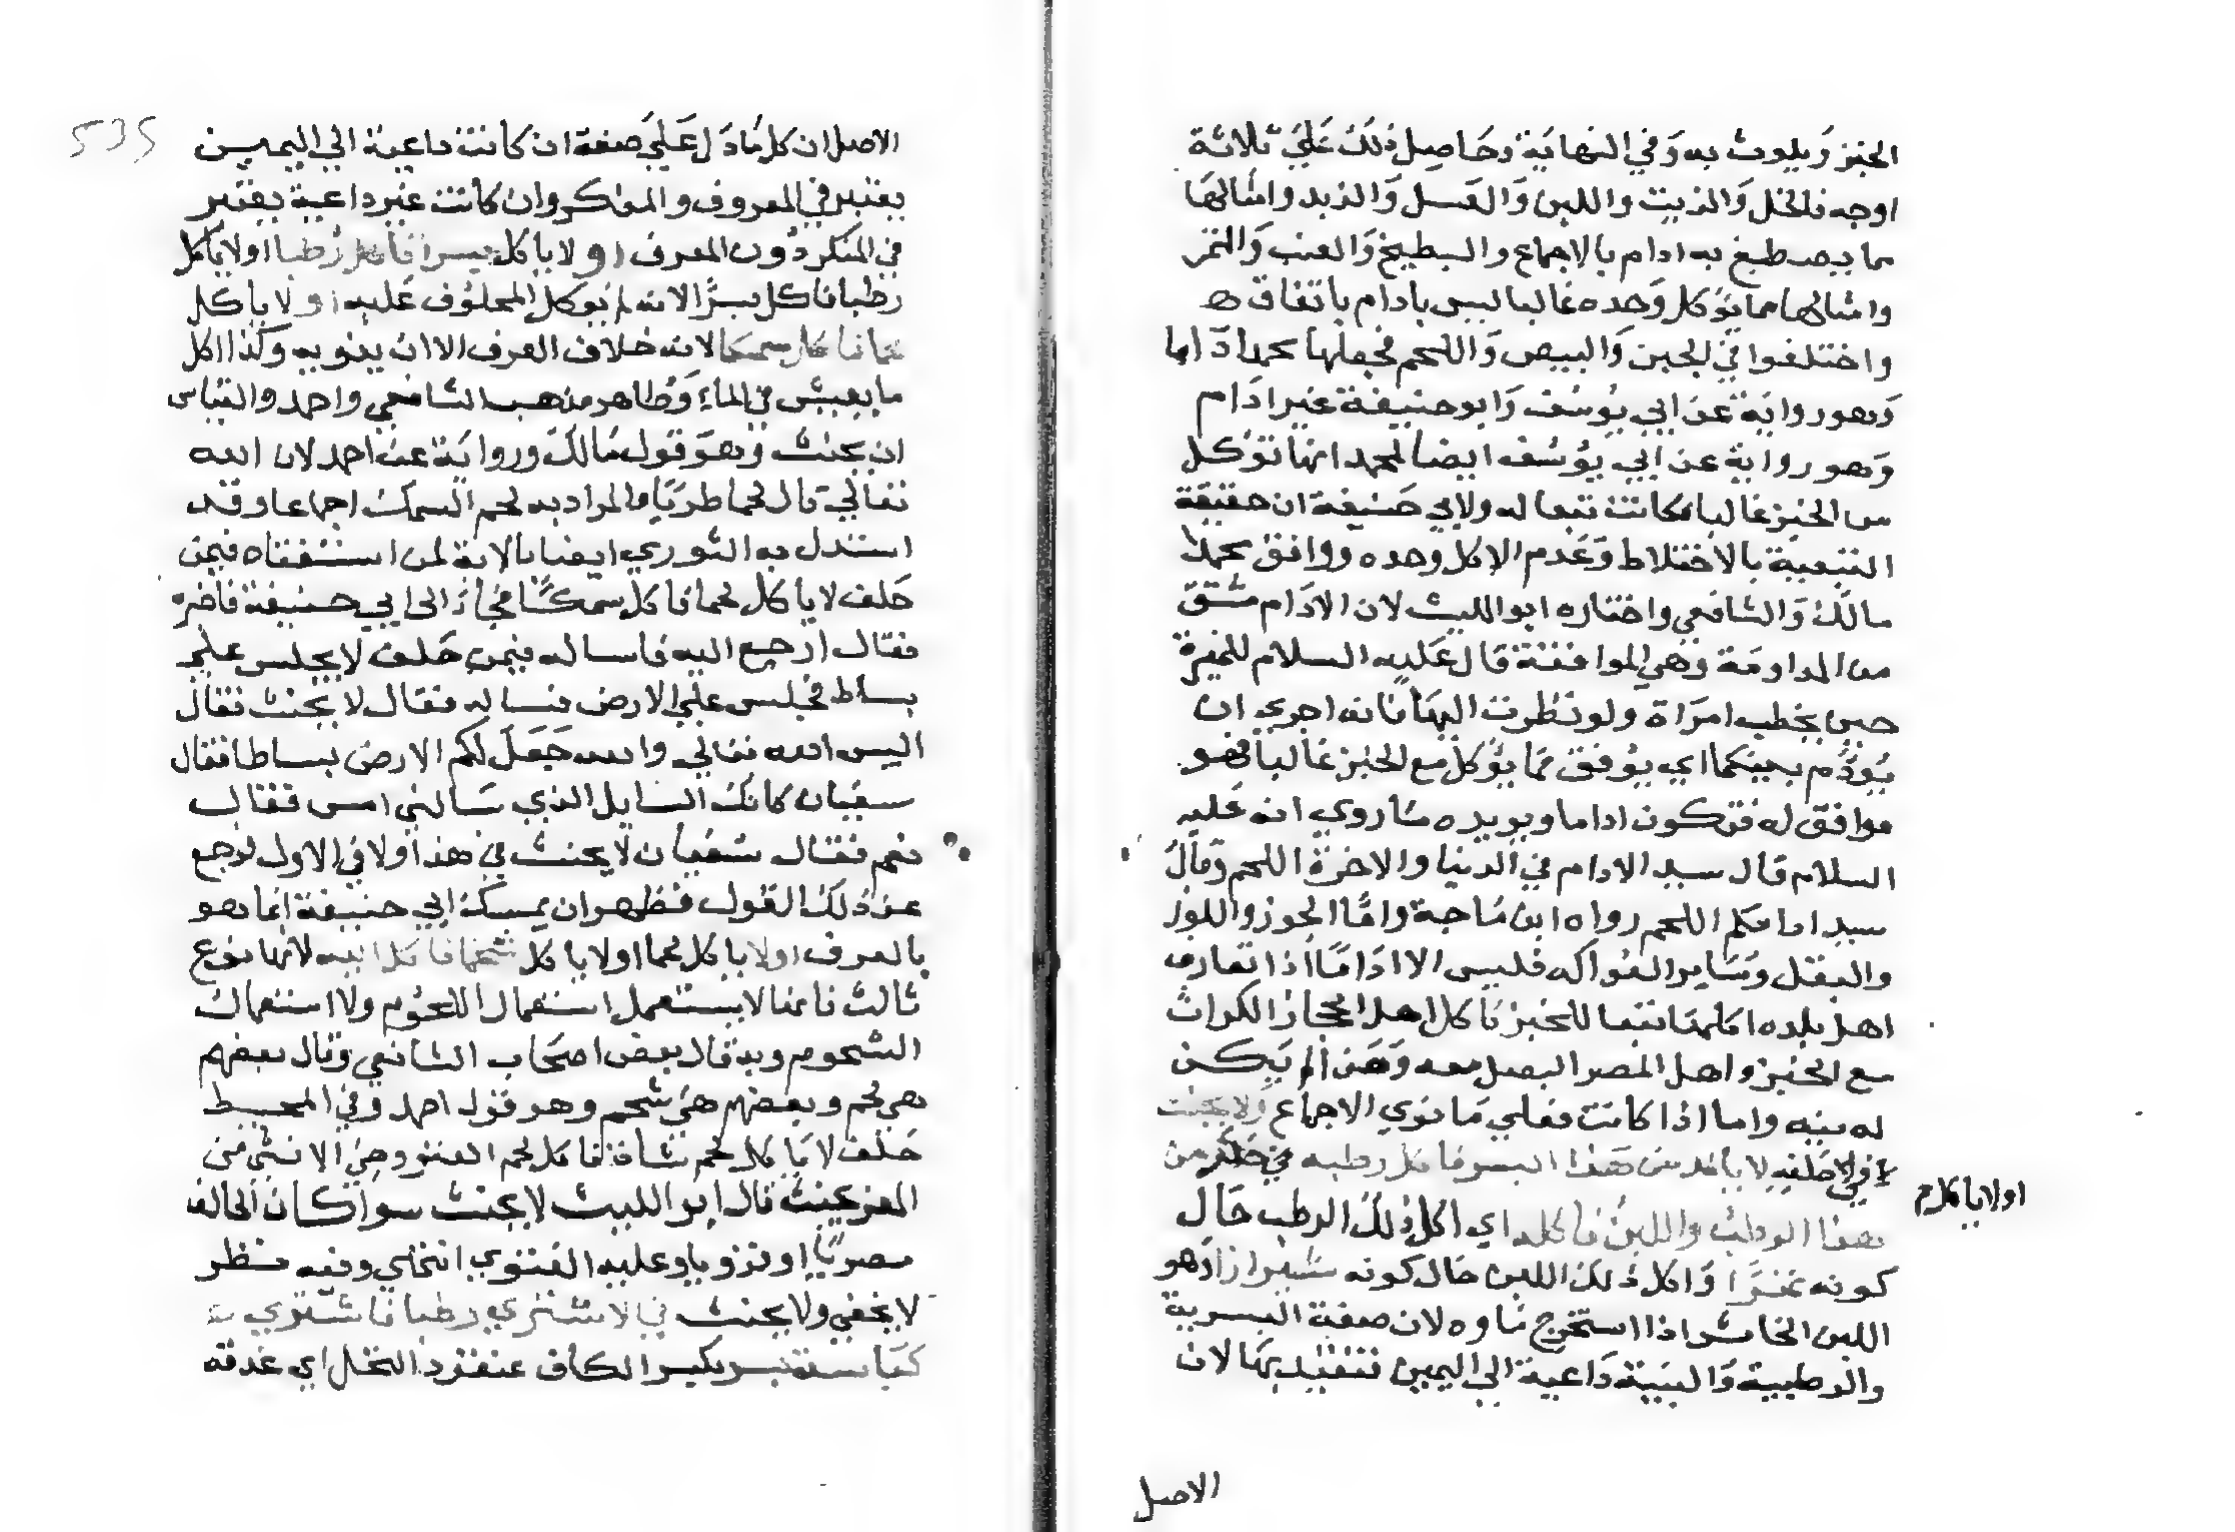 الخبز ويلوث به وفي النهاية وحاصل ذلك على ثلاثة
اوجه فالخل والزيت واللبن والعسل والزبد وامثالها
مما يصطبغ به ادام بالاجماع والبطيخ والعنب والتمر
وامثالها مما يؤكل وحده غالبا ليس بادام باتفاق ه
واختلفوا في الجبن والبيض واللحم فجعلها محمد اداما
وهو رواية عن ابي يوسف وابو حنيفة غير ادام
وهو رواية عن ابي يوسف ايضا لمحمد انها تؤكل
مع الخبز غالبا فكانت تبعا له ولابي حنيفة ان حقيقة
التبعية بالاختلاط وعدم الاكل وحده ووافق محمدا
مالك والشافعي واختاره ابو الليث لان الادام مشتق
من المداومة وهي الموافقة قال عليه السلام للمغيرة
حين يخطب امراة ولو نظرت اليها فانه احري ان
يودم بينكما اي يوفق فما يؤكل مع الخبز غالبا فهو
موافق له فتكون اداما ويويده ما روي انه عليه
السلام قال سيد الادام في الدنيا والاخرة اللحم وقال
سيد ادامكم اللحم رواه ابن ماجة واما الجوز واللوز
والبقل وساير الفواكه فليس الا اداما اذا تعارف
اهل بلده اكلها تبعا للخبز فاكل اهل الحجاز الكراث
مع الخبز واهل المصر البصل معه وهذا لم يكن
له نيه واما اذا كانت فعلي ما نوي الاجماع ولا يحنث
في حلفه لا ياكل من هذا البسر فاكل رطبه
اولا ياكل م
هذا الرطب واللبن فاكله اي اكل ذلك الرطب حال
كونه تمرا واكل ذلك اللبن حال كونه شيرازا وهو
اللبن الخاثر اذا استخرج ماوه لان صفة البسرية
والرطبية والبنية داعية الي اليمين فتتقيد بها لان
الاصل
535
الاصل ان كل ما دل علي صفة ان كانت داعية الي اليمين
يعتبر في المعروف والمنكر وان كانت غير داعية يعتبر
في المنكر دون المعرف او لا ياكل بسرا فاكل رطبا اولا ياكل
رطبا فاكل بسرا لانه لم يوكل المحلوف عليه اولا ياكل
لحما فاكل سمكا لانه خلاف العرف الا ان ينويه وكذا اكل
ما يعيش في الماء وظاهر مذهب الشافعي واحمد والقياس
ان يحنث وهو قول مالك ورواية عن احمد لان الله
تعالي قال لحما طريا والمراد به لحم السمك اجماعا وقد
استدل به الثوري ايضا بالاية لمن استفتاه فيمن
حلف لا ياكل لحما فاكل سمكا فجاء الى ابي حنيفة فاخبره
فقال ارجع اليه فاساله فيمن حلف لا يجلس علي
بساط فجلس علي الارض فساله فقال لا يحنث فقال
اليس الله تعالي والله جعل لكم الارض بساطا فقال
سفيان كانك السايل الذي سالني امس فقال
نعم فقال سفيان لا يحنث في هذا ولا في الاول فرجع
عن ذلك القول فظهر ان تمسك ابي حنيفة انما هو
بالعرف اولا ياكل لحما اولا ياكل شحما فاكل اليه لانها نوع
ثالث فانها لا يستعمل استعمال اللحوم ولا استعمال
الشحوم وبه قال بعض اصحاب الشافعي وقال بعضهم
هي لحم وبعضهم هي شحم وهو قول احمد وفي المحيط
حلف لا ياكل لحم شاة فاكل لحم العنز وهي الانثي من
المعز يحنث قال ابو الليث لا يحنث سوا كان الحالف
مصريا او قرويا وعليه الفتوي انتهي وفيه نظر
لا يخفي ولا يحنث في لا يشتري رطبا فاشتري
كباسة بسر بكسر الكاف عنقود النخل اي عذقه